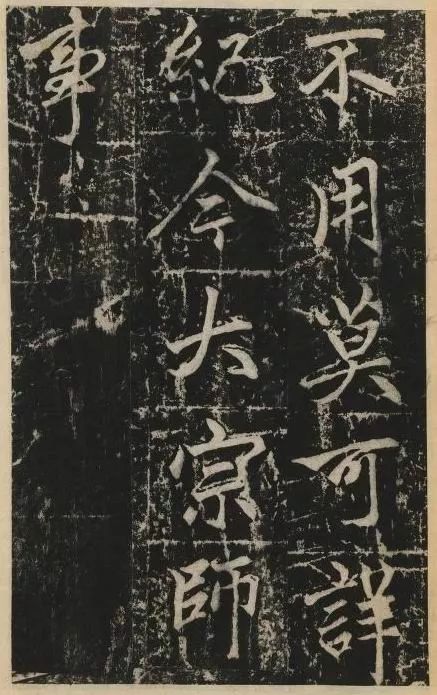 不用莫可詳
紀今大宗師
事